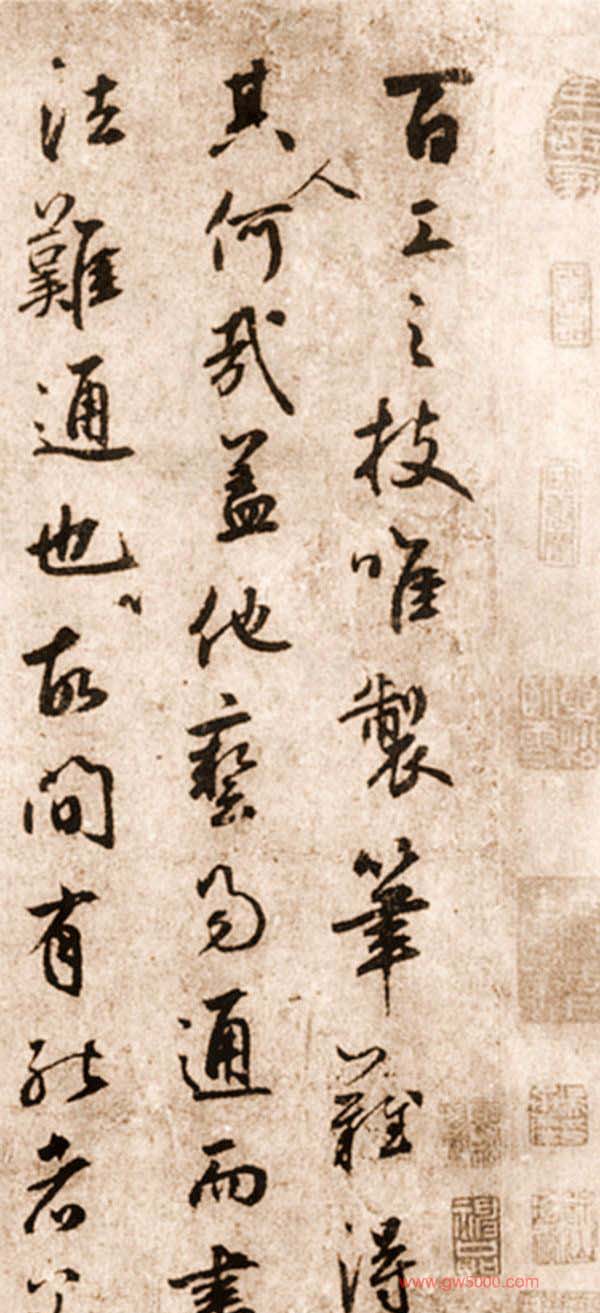 百工之技唯製筆難得
其人何哉盖他藝易通而書
法難通也故間有能者
www.gw5000.com